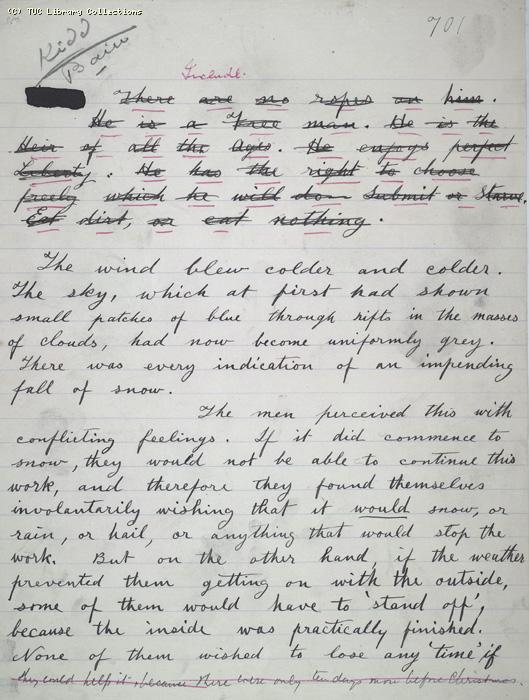 (C) TUC Library Collections
701
Kidd
Bain
Include.
There are no ropes on him.
He is a Free man. He is the
Heir of all the Ages. He enjoys perfect
Liberty. He has the right to choose
freely which he will do – Submit or Starve.
Eat dirt, or eat nothing.
The wind blew colder and colder.
The sky, which at first had shown
small patches of blue through rifts in the masses
of clouds, had now become uniformly grey.
There was every indication of an impending
fall of snow.
The men perceived this with
conflicting feelings. If it did commence to
snow, they would not be able to continue this
work, and therefore they found themselves
involuntarily wishing that it would snow, or
rain, or hail, or anything that would stop the
work. But on the other hand, if the weather
prevented them getting on with the outside,
some of them would have to 'stand off',
because the inside was practically finished.
None of them wished to lose any 'time' if
they could help it, because there were only ten days more before Christmas.